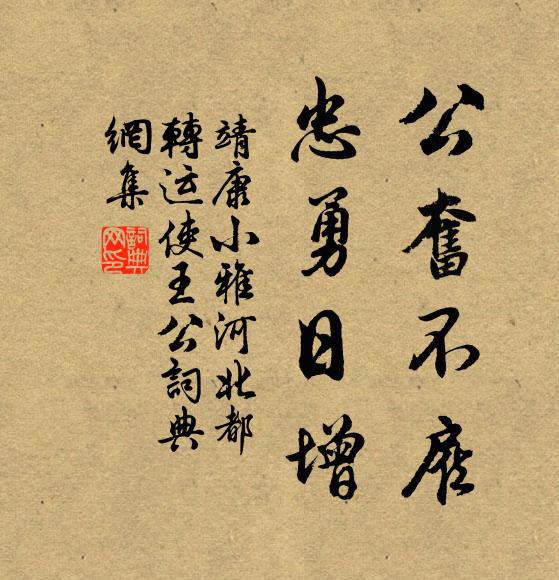 公奮不
忠勇日增
靖康小雅河北都
轉运使王公詞典
網集
詞典
网印